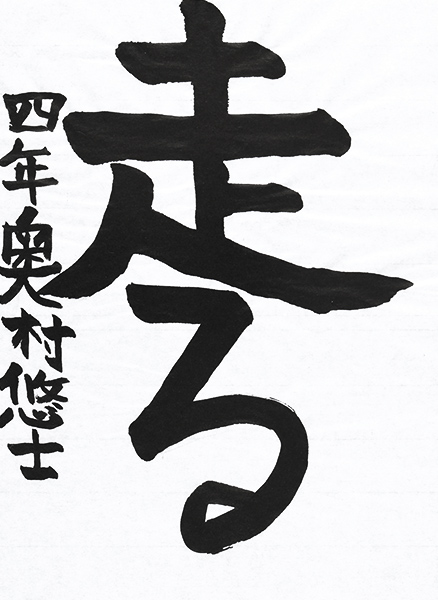 走る
四年奥村悠士